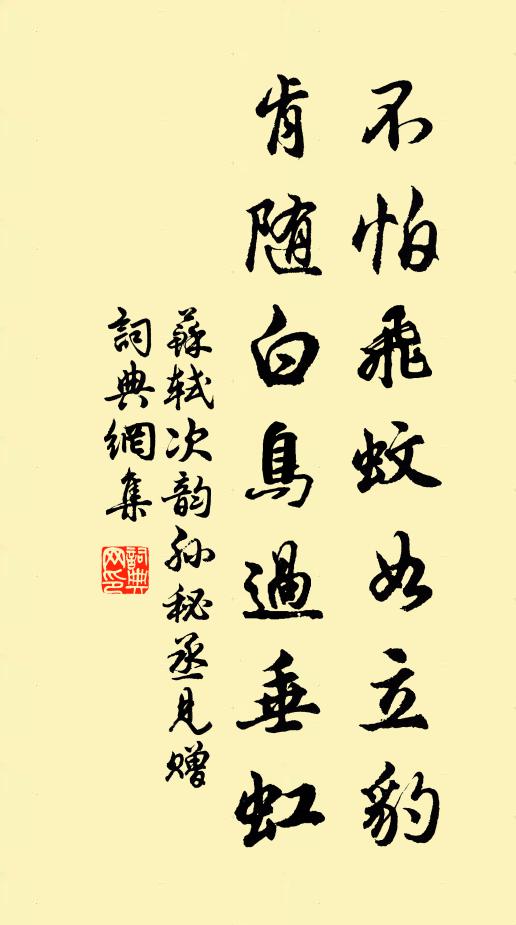 不怕飛蚊如立豹
肯随白鳥過垂虹
蘇軾次韵孙秘丞見赠
詞典網集
詞典
网印